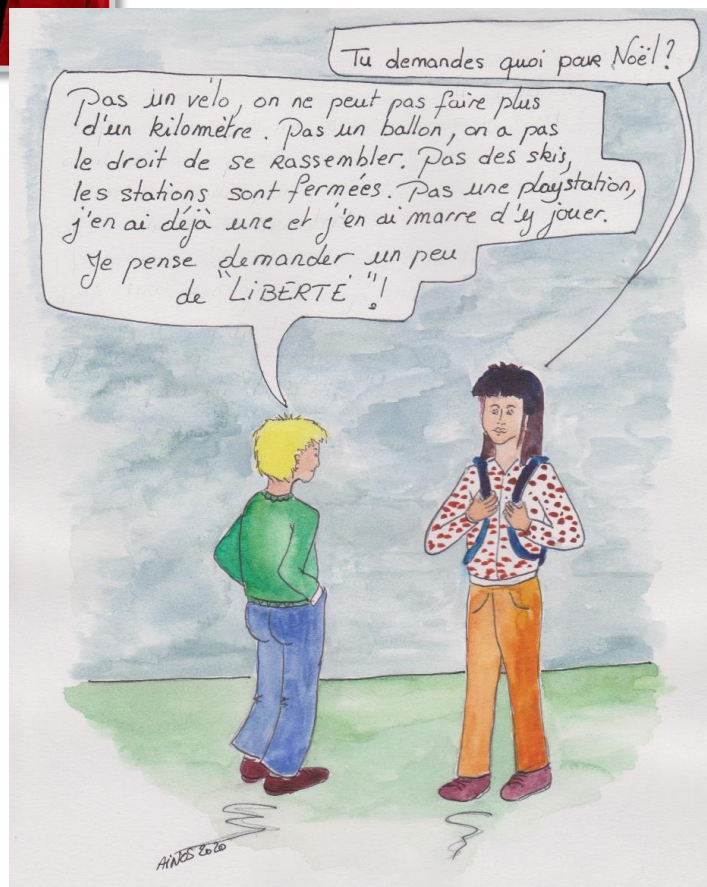 Tu demandes quoi pour Noël ?
Pas un vélo, on ne peut pas faire plus
d'un kilomètre. Pas un ballon, on a pas
le droit de se rassembler. Pas des skis,
les stations sont fermées. Pas une playstation,
j'en ai déjà une et j'en ai marre d'y jouer.
Je pense demander un peu
de "LIBERTÉ" !
AiNOS 2020